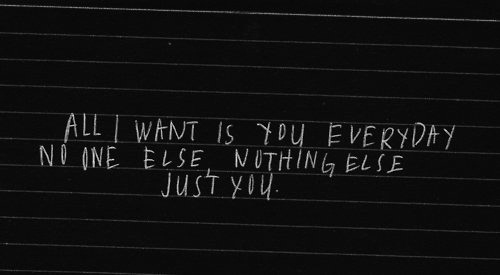 ALL I WANT IS YOU EVERYDAY
NO ONE ELSE, NOTHING ELSE
JUST YOU.